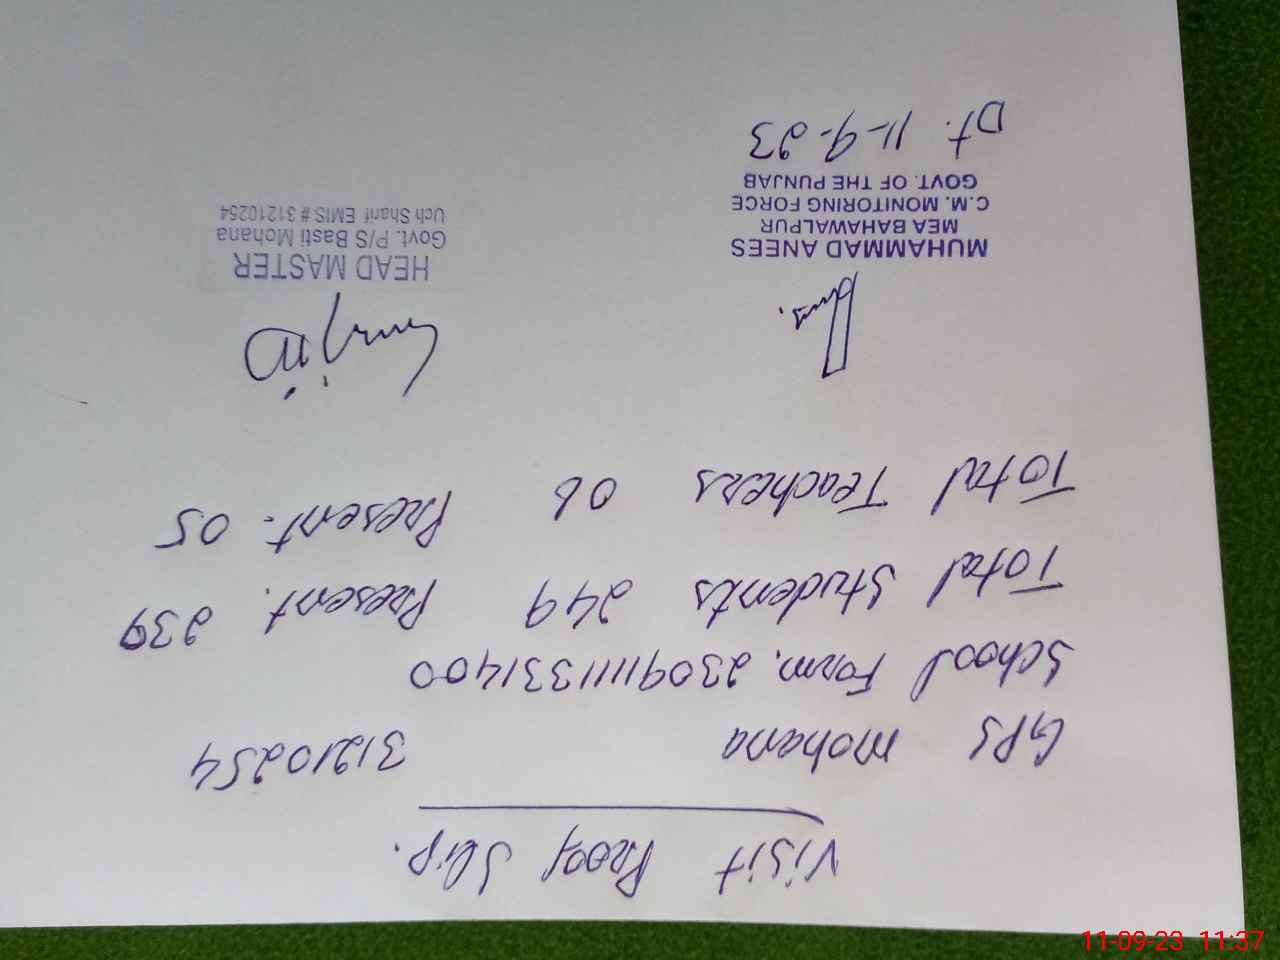 Visit Proof Slip.
GPS Mohana 31210254
School Form. 23091111331400
Total Students 249 Present. 239
Total Teachers 06 Present. 05
MUHAMMAD ANEES
MEA BAHAWALPUR
C.M. MONITORING FORCE
GOVT. OF THE PUNJAB
Dt. 11-9-23
HEAD MASTER
Govt. P/S Basti Mohana
Uch Sharif EMIS # 31210254
11-09-23 11:37